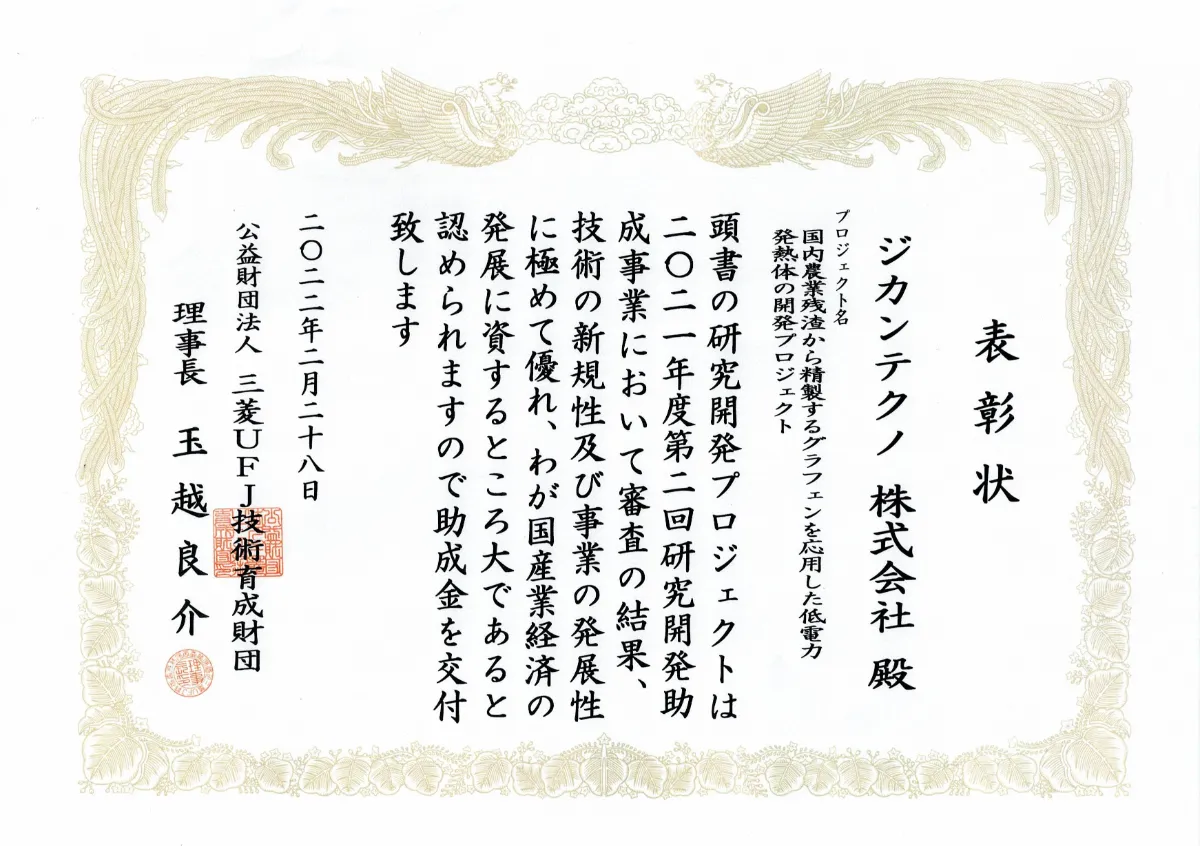 表彰状
ジカンテクノ 株式会社 殿
プロジェクト名
国内農業残渣から精製するグラフェンを応用した低電力
発熱体の開発プロジェクト
頭書の研究開発プロジェクトは
二〇二一年度第二回研究開発助
成事業において審査の結果、
技術の新規性及び事業の発展性
に極めて優れ、わが国産業経済の
発展に資するところ大であると
認められますので助成金を交付
致します
二〇二二年二月二十八日
公益財団法人 三菱UFJ技術育成財団
理事長 玉越良介